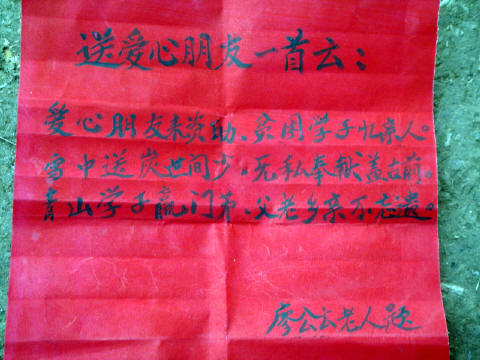 送爱心朋友一首云：
爱心朋友来资助、贫困学子忆亲人。
雪中送炭世间少。无私奉献盖古前。
青山学子赢门弟、父老乡亲不忘遗。
廖公云老人题